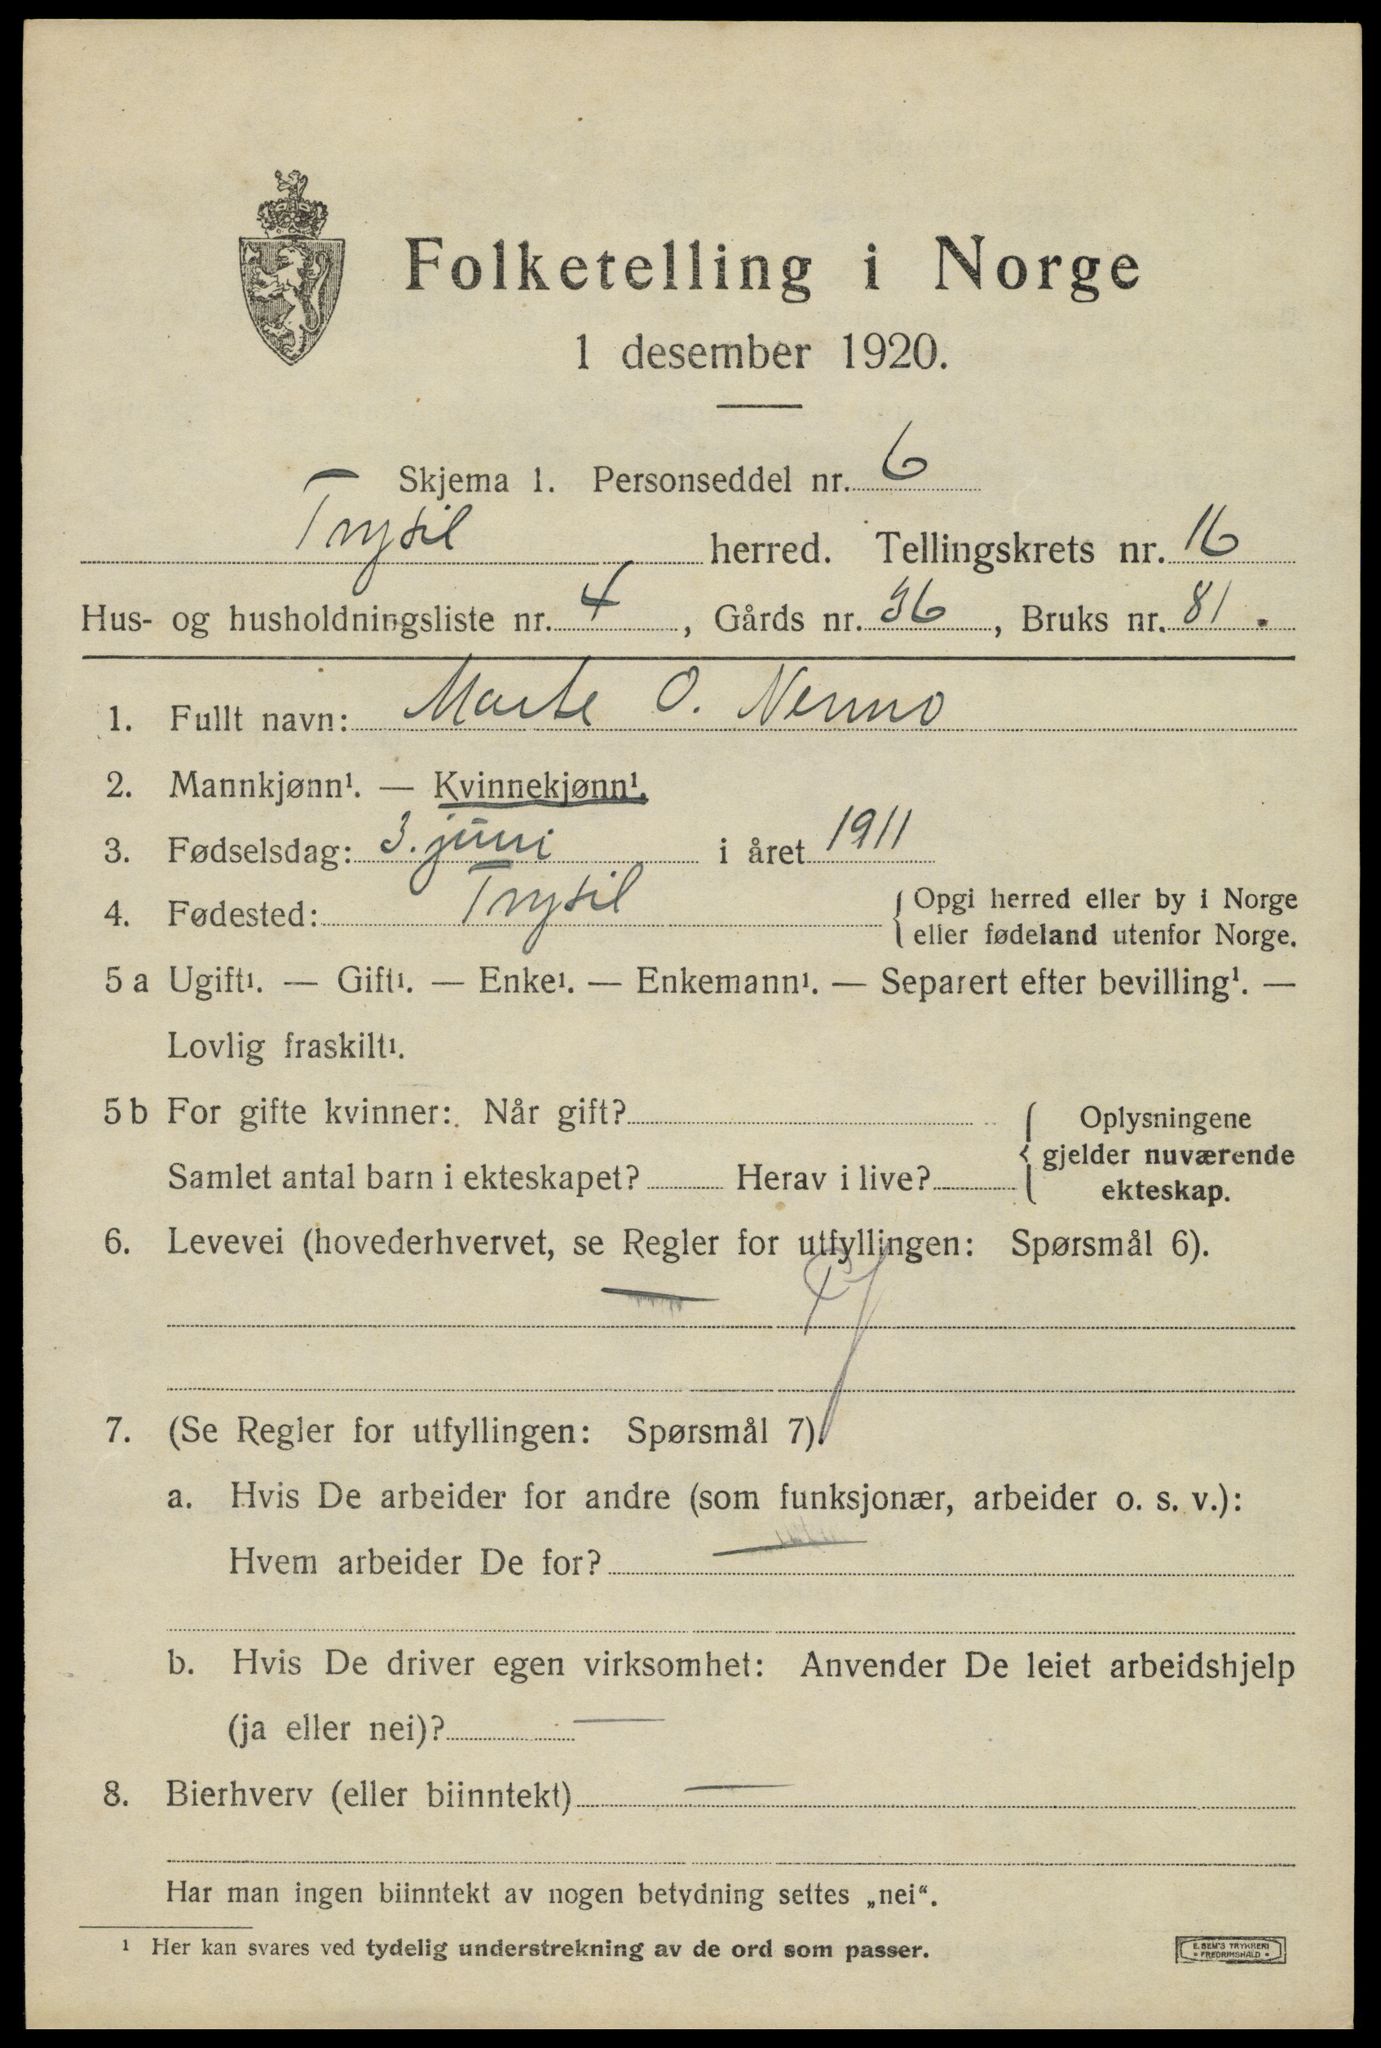 Folketelling i Norge
1 desember 1920.
Skjema 1. Personseddel nr. 6
Trysil herred. Tellingskrets nr. 16
Hus- og husholdningsliste nr. 4, Gårds nr. 36, Bruks nr. 81.
1. Fullt navn: Marte O. Nermo
2. Mannkjønn¹. — Kvinnekjønn¹.
3. Fødselsdag: 3. juni i året 1911
4. Fødested: Trysil { Opgi herred eller by i Norge
eller fødeland utenfor Norge.
5 a Ugift¹. — Gift¹. — Enke¹. — Enkemann¹. — Separert efter bevilling¹. —
Lovlig fraskilt¹.
5 b For gifte kvinner: Når gift? { Oplysningene
gjelder nuværende
Samlet antal barn i ekteskapet? Herav i live? ekteskap.
6. Levevei (hovederhvervet, se Regler for utfyllingen: Spørsmål 6).
—
7. (Se Regler for utfyllingen: Spørsmål 7).
a. Hvis De arbeider for andre (som funksjonær, arbeider o. s. v.):
Hvem arbeider De for? —
b. Hvis De driver egen virksomhet: Anvender De leiet arbeidshjelp
(ja eller nei)? —
8. Bierhverv (eller biinntekt) —
Har man ingen biinntekt av nogen betydning settes „nei“.
¹ Her kan svares ved tydelig understrekning av de ord som passer.
E. SEM'S TRYKKERI
• FREDRIKSHALD •